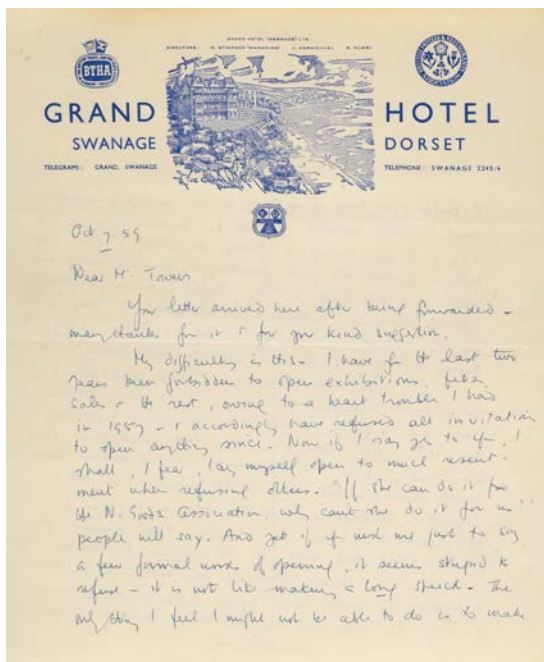 GRAND HOTEL (SWANAGE) LTD.
DIRECTORS:
BTHA
GRAND HOTEL
SWANAGE DORSET
TELEGRAMS: GRAND, SWANAGE TELEPHONE: SWANAGE 2245/6
Oct 7. 59
Dear Mr. Towers
Your letter arrived here after being forwarded –
many thanks for it & for your kind suggestion.
My difficulty is this – I have for the last two
years been forbidden to open exhibitions, fetes,
sales & the rest, owing to a heart trouble I had
in 1957 – & accordingly have refused all invitations
to open anything since. Now if I say yes to you, I
shall, I fear, lay myself open to much resent-
ment when refusing others. "If she can do it for
the N. Association, why cant she do it for us"
people will say. And yet if you wish me just to say
a few formal words of opening, it seems stupid to
refuse – it is not like making a long speech – The
only thing I feel I might not be able to do is to make